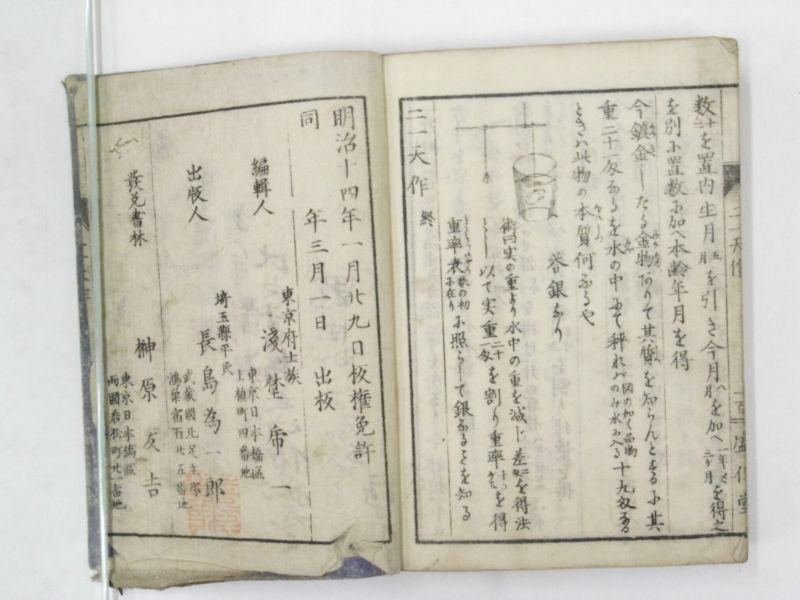 数二十を置内生月五月を引き今月八月を加へ一年ト三ケ月を得之
を別に置数に加へ本齢年月を得
今鍍金したる金物ありて其質を知らんとするに其
重二十匁なるを水の中にて秤れハ図の如く品物のみ水に入る十九匁なる
ときハ此物の本質何なるや
答銀なり
術曰実の重より水中の重を減じ差を得法
とし以て実重二十匁を割り重率を得
重率表に照らして銀なることを知る
二一天作 終
二一天作
明治十四年一月廿九日板権免許
同 年三月一日 出板
東京府士族
編輯人
東京日本橋區
上槇町四番地
埼玉縣平民
出版人 長島為一郎
武蔵國北足立郡
鴻巣宿百廿五番地
發兌書林 榊原友吉
東京日本橋區
両國若松町廿一番地